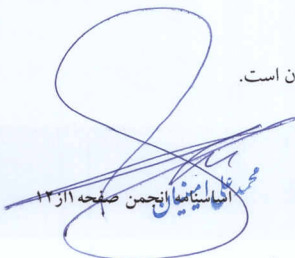 ن است.
محمد علی امینیان
اساسنامه انجمن صفحه ۱از۱۲